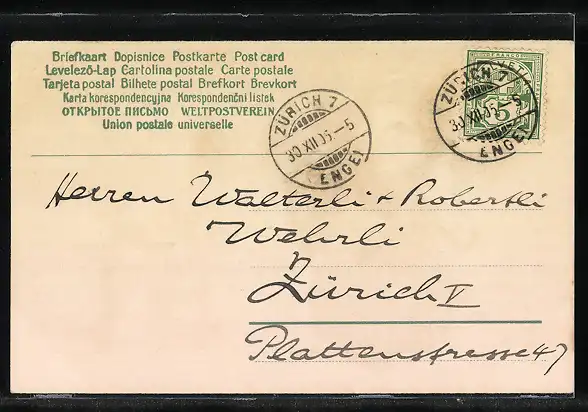 Briefkaart Dopisnice Postkarte Post card
Levelező-Lap Cartolina postale Carte postale
Tarjeta postal Bilhete postal Brefkort Brevkort
Karta korespondencyjna Korespondenční listek
ОТКРЫТОЕ ПИСЬМО WELTPOSTVEREIN
Union postale universelle
ZÜRICH 7
30 XII 05–5
(ENGE)
FRANCO
ZÜRICH 7
30 XII 05–5
(ENGE)
5
Herren Walterli & Robertli
Wehrli
Zürich V
Plattenstrasse 47